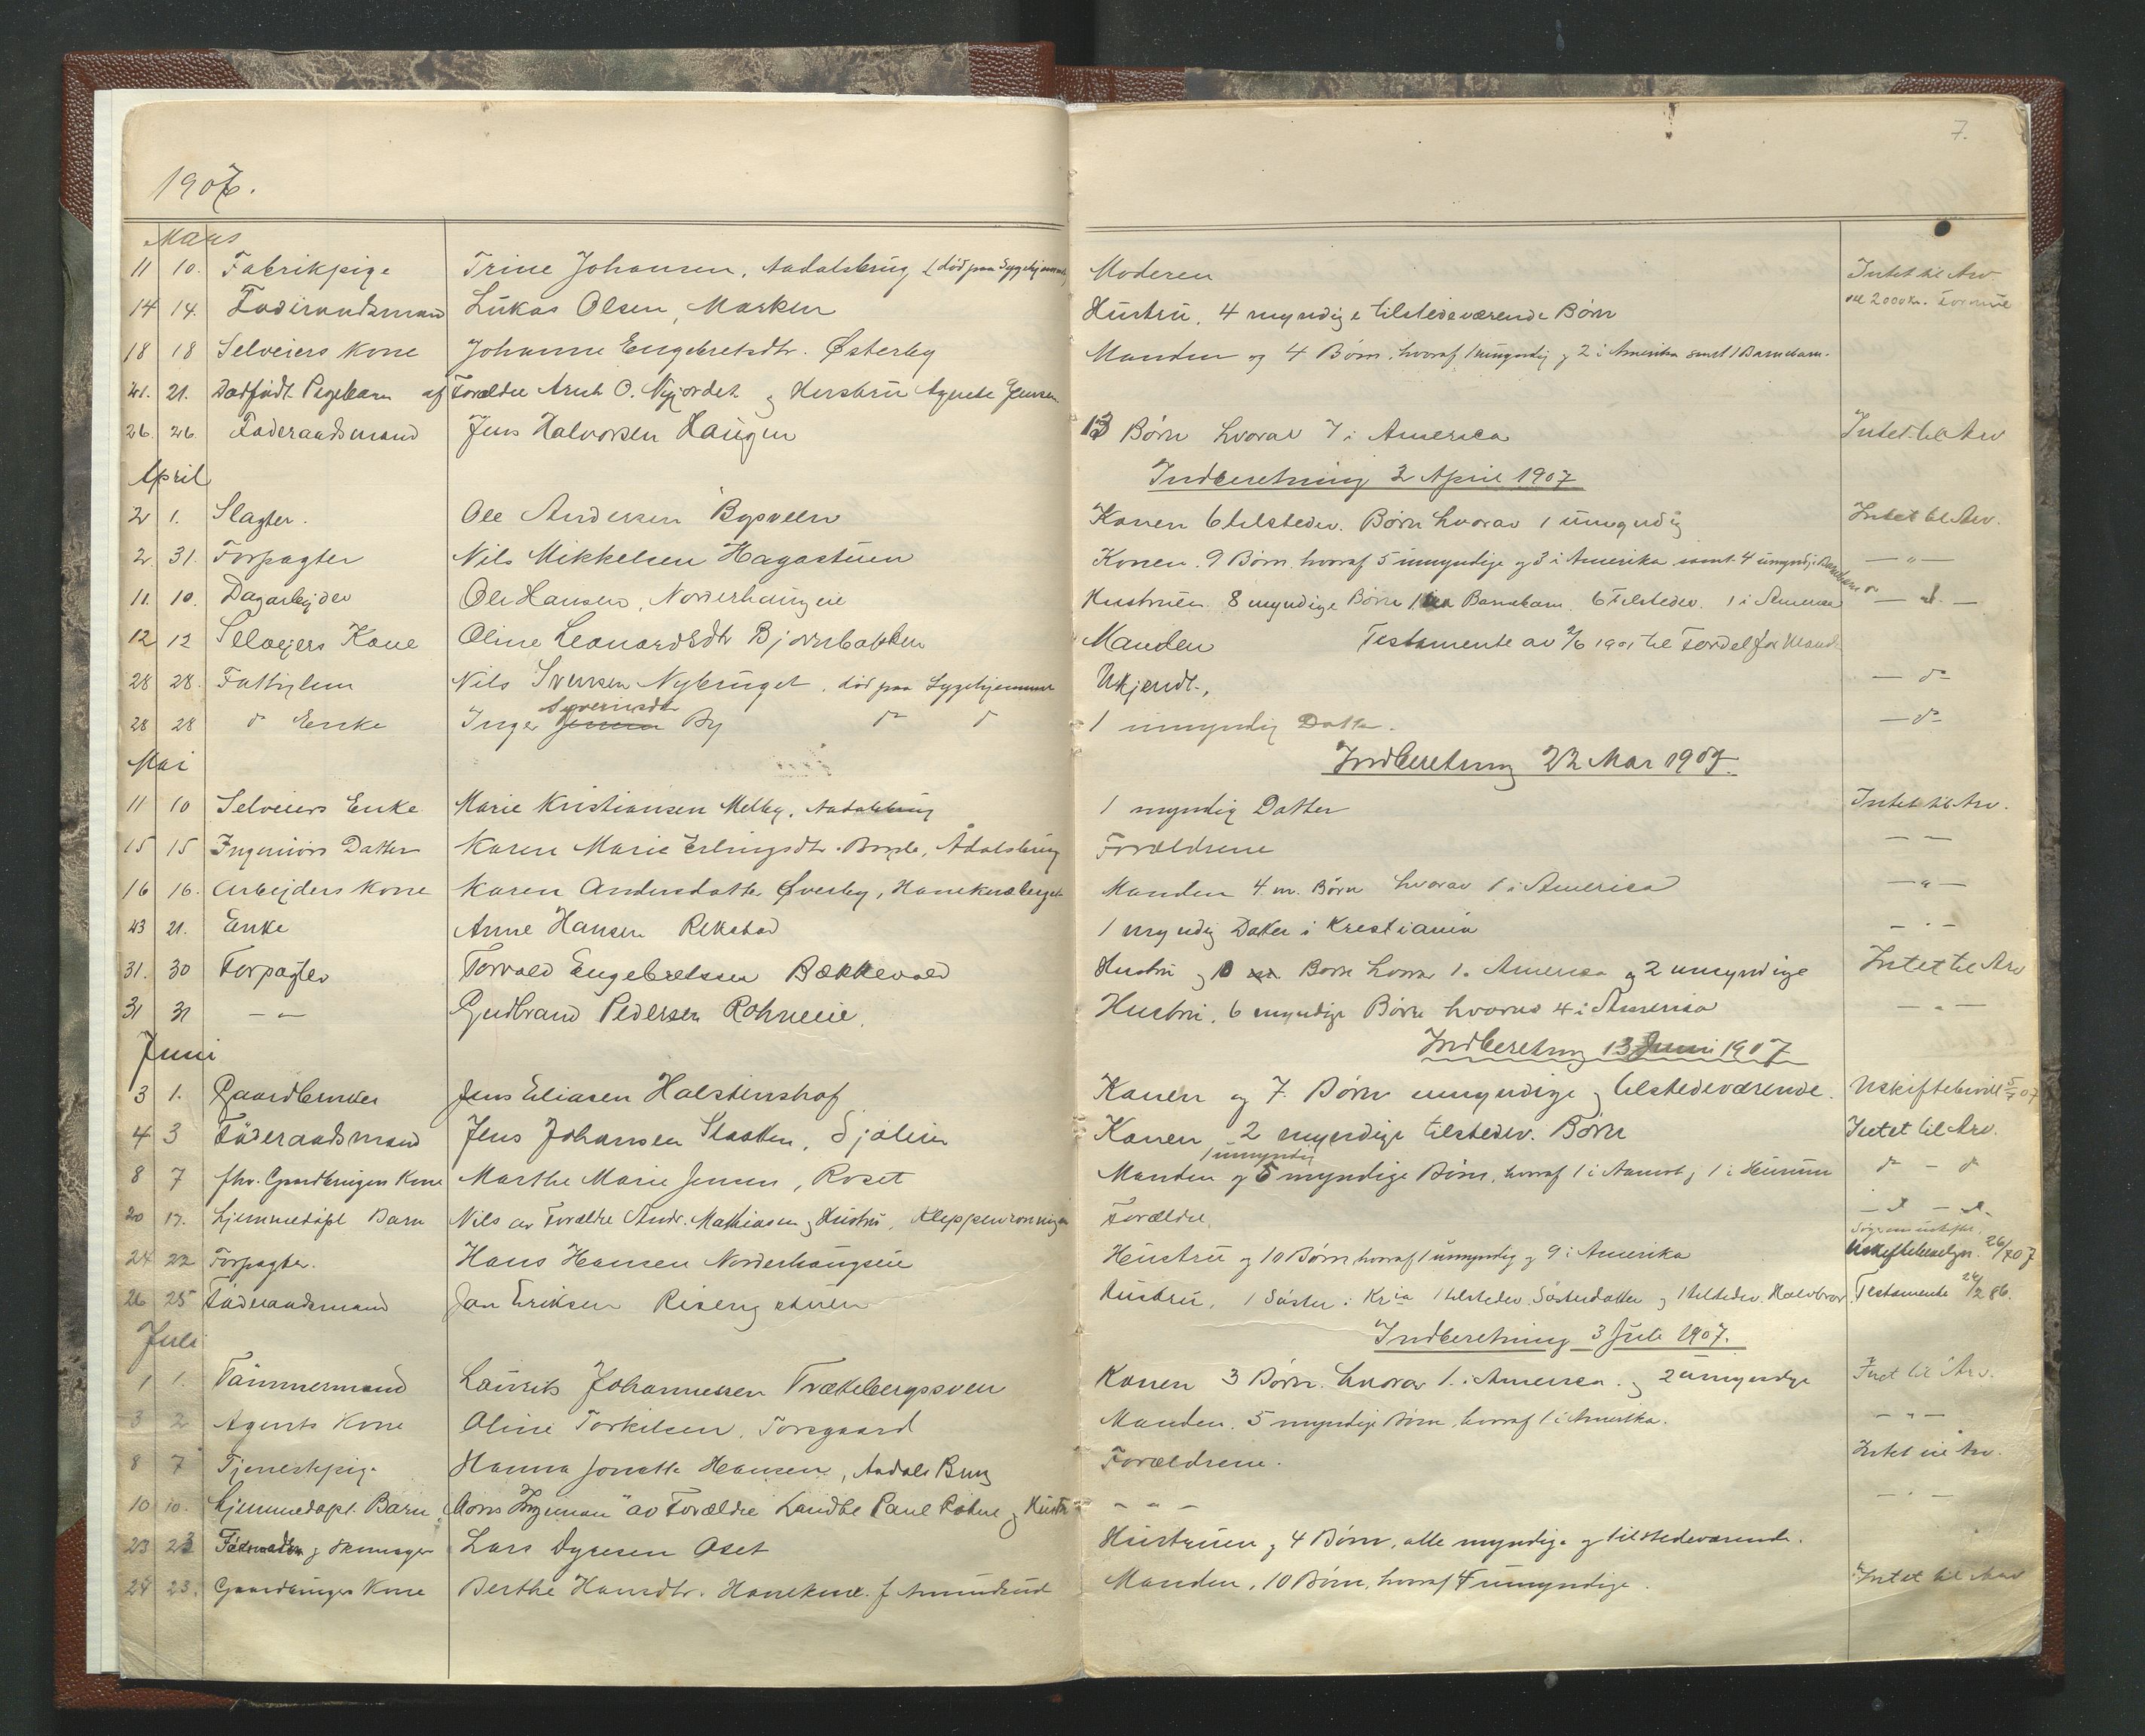 7.
1907.
Mars
11 10. Fabrikpige Trine Johansen, Aadalsbrug (død paa Sygehjemmet) Moderen Intet til Arv
14 14. Føderaadsmand Lukas Olsen, Marken Hustru, 4 myndige tilstedeværende Børn 2000 Kr. Formue
18 18 Selveiers Kone Johanne Engebretsdtr. Østerby Manden og 4 Børn, hvoraf 1 umyndig og 2 i Amerika samt 1 Barnebarn.
21. 21. Dødfødt Pigebarn af Forældre Arnt O. Nyjordet og Hustru Agnete Jensen
26. 26. Føderaadsmand Jens Halvorsen Haugen 13 Børn hvorav 7 i America Intet til Arv
April Indberetning 2 April 1907
2 1. Slagter. Ole Andersen Bysveen Konen 6 tilstedev. Børn hvorav 1 umyndig Intet til Arv.
2 31. Forpagter Nils Mikkelsen Hagastuen Konen. 9 Børn hvoraf 5 umyndige og 3 i Amerika samt 4 umyndige Barnebørn — " —
11. 10. Dagarbejder Ole Hansen, Norderhaugen Hustruen 8 myndige Børn 1 Barnebarn. 6 tilstedev. 1 i America — d. —
12 12 Selvejers Kone Oline Leonardsdtr Bjørnbakken Manden Testamente av 2/6 1901 til Fordel for Mand
28 28. Fattiglem Nils Svensen Nybruget, død paa Sygehjemmet Ukjendt., — do
28 28 do Enke Inger Syverinsdtr By do d 1 umyndig Datter. — do
Mai Indberetning 22 Mai 1907.
11 10 Selveiers Enke Marie Kristiansen Melby, Aadalsbrug 1 myndig Datter Intet til Arv.
15 15 Ingeniørs Datter Karen Marie Erlingsdtr. Aadalsbrug Forældrene — —
16 16. Arbejders Kone Karen Andersdatter Øverby, Haneknæberget Manden 4 m. Børn hvorav 1 i America — " —
23 21. Enke Anne Hansen Rekstad 1 myndig Datter i Kristiania — " —
31. 30 Forpagter Torvald Engebretsen Bækkevold Hustru og Børn hvorav 1 i America og 2 umyndige Intet til Arv
31 31 — " — Gudbrand Pedersen Rohneie. Hustru, 6 myndige Børn hvorav 4 i America — " —
Juni Indberetning 13 Juni 1907
3 1. Gaardbruker Jens Eliasen Halstinshof Konen og 7 Børn umyndige og tilstedeværende. Uskiftebevill 5/7 07
4 3 Føderaadsmand Jens Johansen Slaatten, Sjølien Konen 2 myndige tilstedev. Børn Intet til Arv.
8 7 fhv. Gaardbrugers Kone Marthe Marie Jensen, Roset Manden og 1 umyndig 5 myndige Børn, hvoraf 1 i Aamot og 1 i Hurum do — do
20 17. hjemmedøpt Barn Nils av Forældre Andr. Mathiasen og Hustru, Kleppenrønningen Forældre. — d. — d.
24 22 Forpagter. Hans Hansen Norderhaugseie Hustru og 10 Børn hvoraf 1 umyndig og 9 i Amerika Uskiftebevilgn. 26/7 07
26 25 Føderaadsmand Jon Eriksen Risengstuen Hustru, 1 Søster i Kria 1 tilstedev. Søsterdatter og 1 tilstedev. Halvbror. Testamente 24/2 86.
Juli Indberetning 3 Juli 1907.
1 1. Tømmermand Laurits Johannessen Trættebergssveen Konen 3 Børn hvorav 1. i America. og 2 umyndige Intet til Arv.
3 2 Agents Kone Oline Torkilsen, Torsgaard Manden. 5 myndige Børn, hvoraf 1 i Amerika. — " —
8 7 Tjenestepige Hanna Jonette Hansen, Aadals Brug Forældrene. Intet til Arv.
10 10. hjemmedøpt Barn "Goris Ingeman" av Forældre Landbr Paul Rohne og Hustru — " — — " —
23 23 og Skomager Lars Dyresen Oset Hustruen og 4 Børn, alle myndige og tilstedeværende.
24 23. Gaardbrugers Kone Berthe Hansdtr. Haneknæ. f Amundrud Manden, 10 Børn, hvoraf 4 umyndige. Intet til Arv